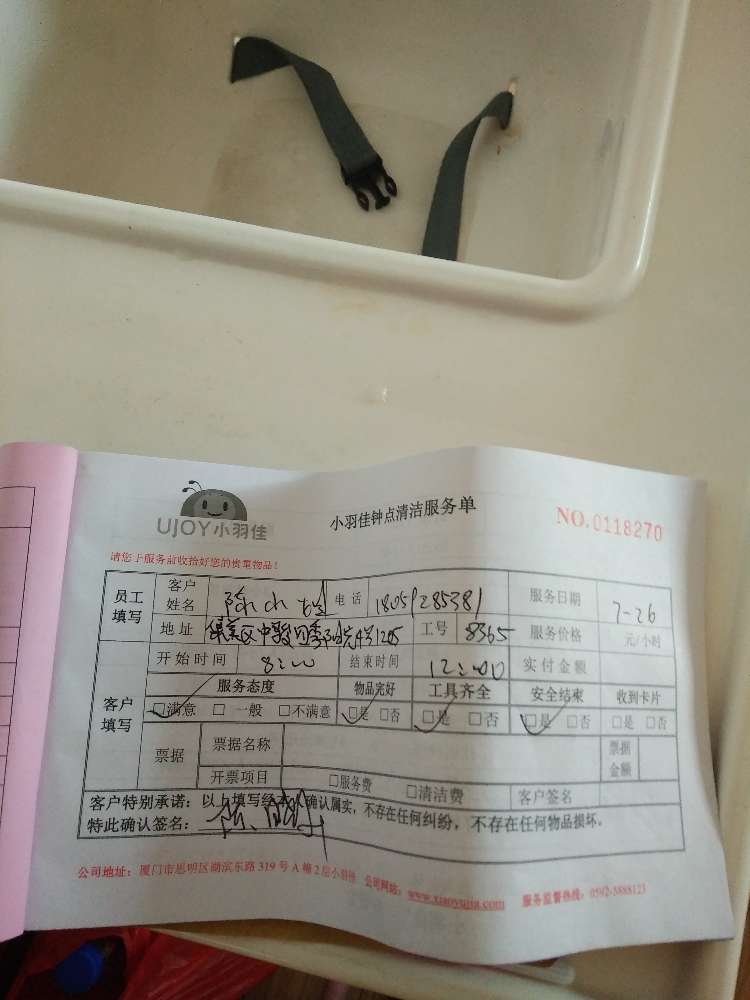 UJOY小羽佳
小羽佳钟点清洁服务单
NO.0118270
请您于服务前收拾好您的贵重物品！
员工填写 客户姓名 陈 电话 18059285381 服务日期 7-26
地址 集美区中骏四季阳光 1205 工号 8365 服务价格 元/小时
客户填写 开始时间 8:00 结束时间 12:00 实付金额
服务态度 物品完好 工具齐全 安全结束 收到卡片
☑满意 □一般 □不满意 ☑是 □否 ☑是 □否 ☑是 □否 □是 □否
票据 票据名称 票据金额
开票项目 □服务费 □清洁费 客户签名
客户特别承诺：以上填写经本人确认属实，不存在任何纠纷，不存在任何物品损坏。
特此确认签名：
公司地址：厦门市思明区湖滨东路319号A幢2层小羽佳 公司网站：www.xiaoyujia.com 服务监督热线：0592-5888123